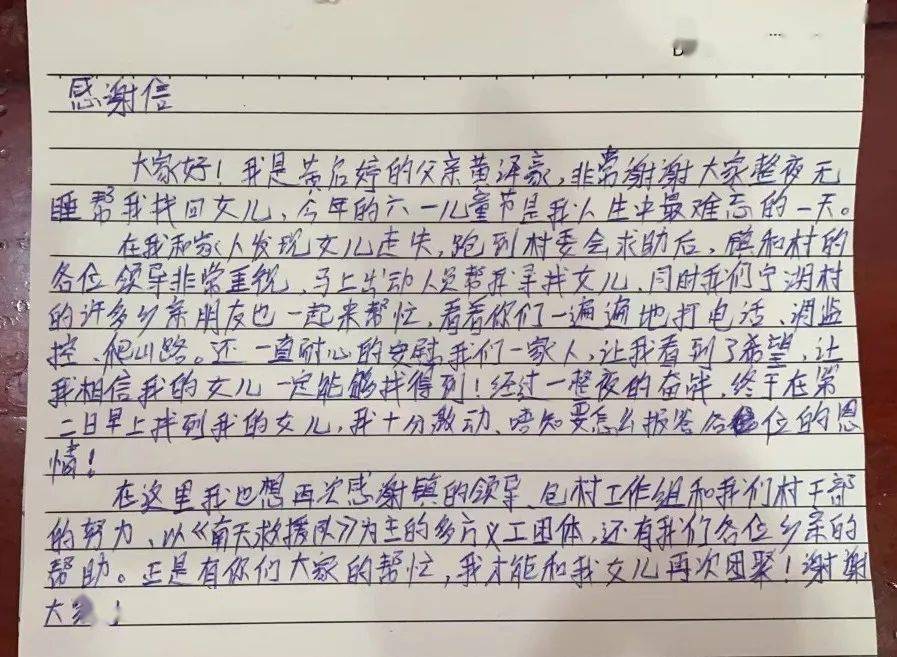 感谢信
大家好！我是黄启婷的父亲黄泽豪，非常谢谢大家整夜无
睡帮我找回女儿，今年的六一儿童节是我人生中最难忘的一天。
在我和家人发现女儿走失，跑到村委会求助后，镇和村的
各位领导非常重视，马上出动人员帮我寻找女儿，同时我们宁湖村
的许多乡亲朋友也一起来帮忙，看着你们一遍遍地打电话、调监
控、爬山路。还一直耐心的安慰我们一家人，让我看到了希望，让
我相信我的女儿一定能够找得到！经过一整夜的奋战，终于在第
二日早上找到我的女儿，我十分激动、唔知要怎么报答各位的恩
情！
在这里我也想再次感谢镇的领导、包村工作组和我们村干部
的努力、以《南天救援队》为主的多方义工团体，还有我们各位乡亲的
帮助。正是有你们大家的帮忙，我才能和我女儿再次团聚！谢谢
大家！